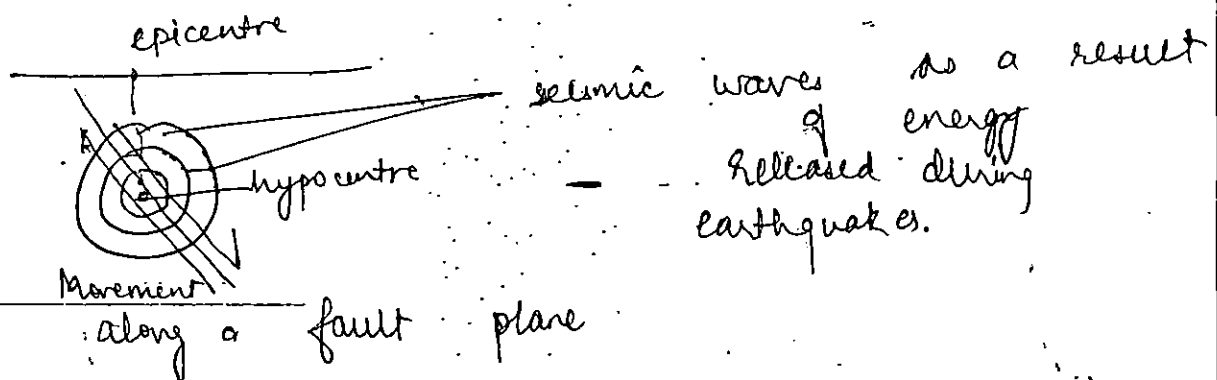 epicentre
seismic waves as a result
of energy
released during
earthquakes.
hypocentre
Movement
along a fault plane